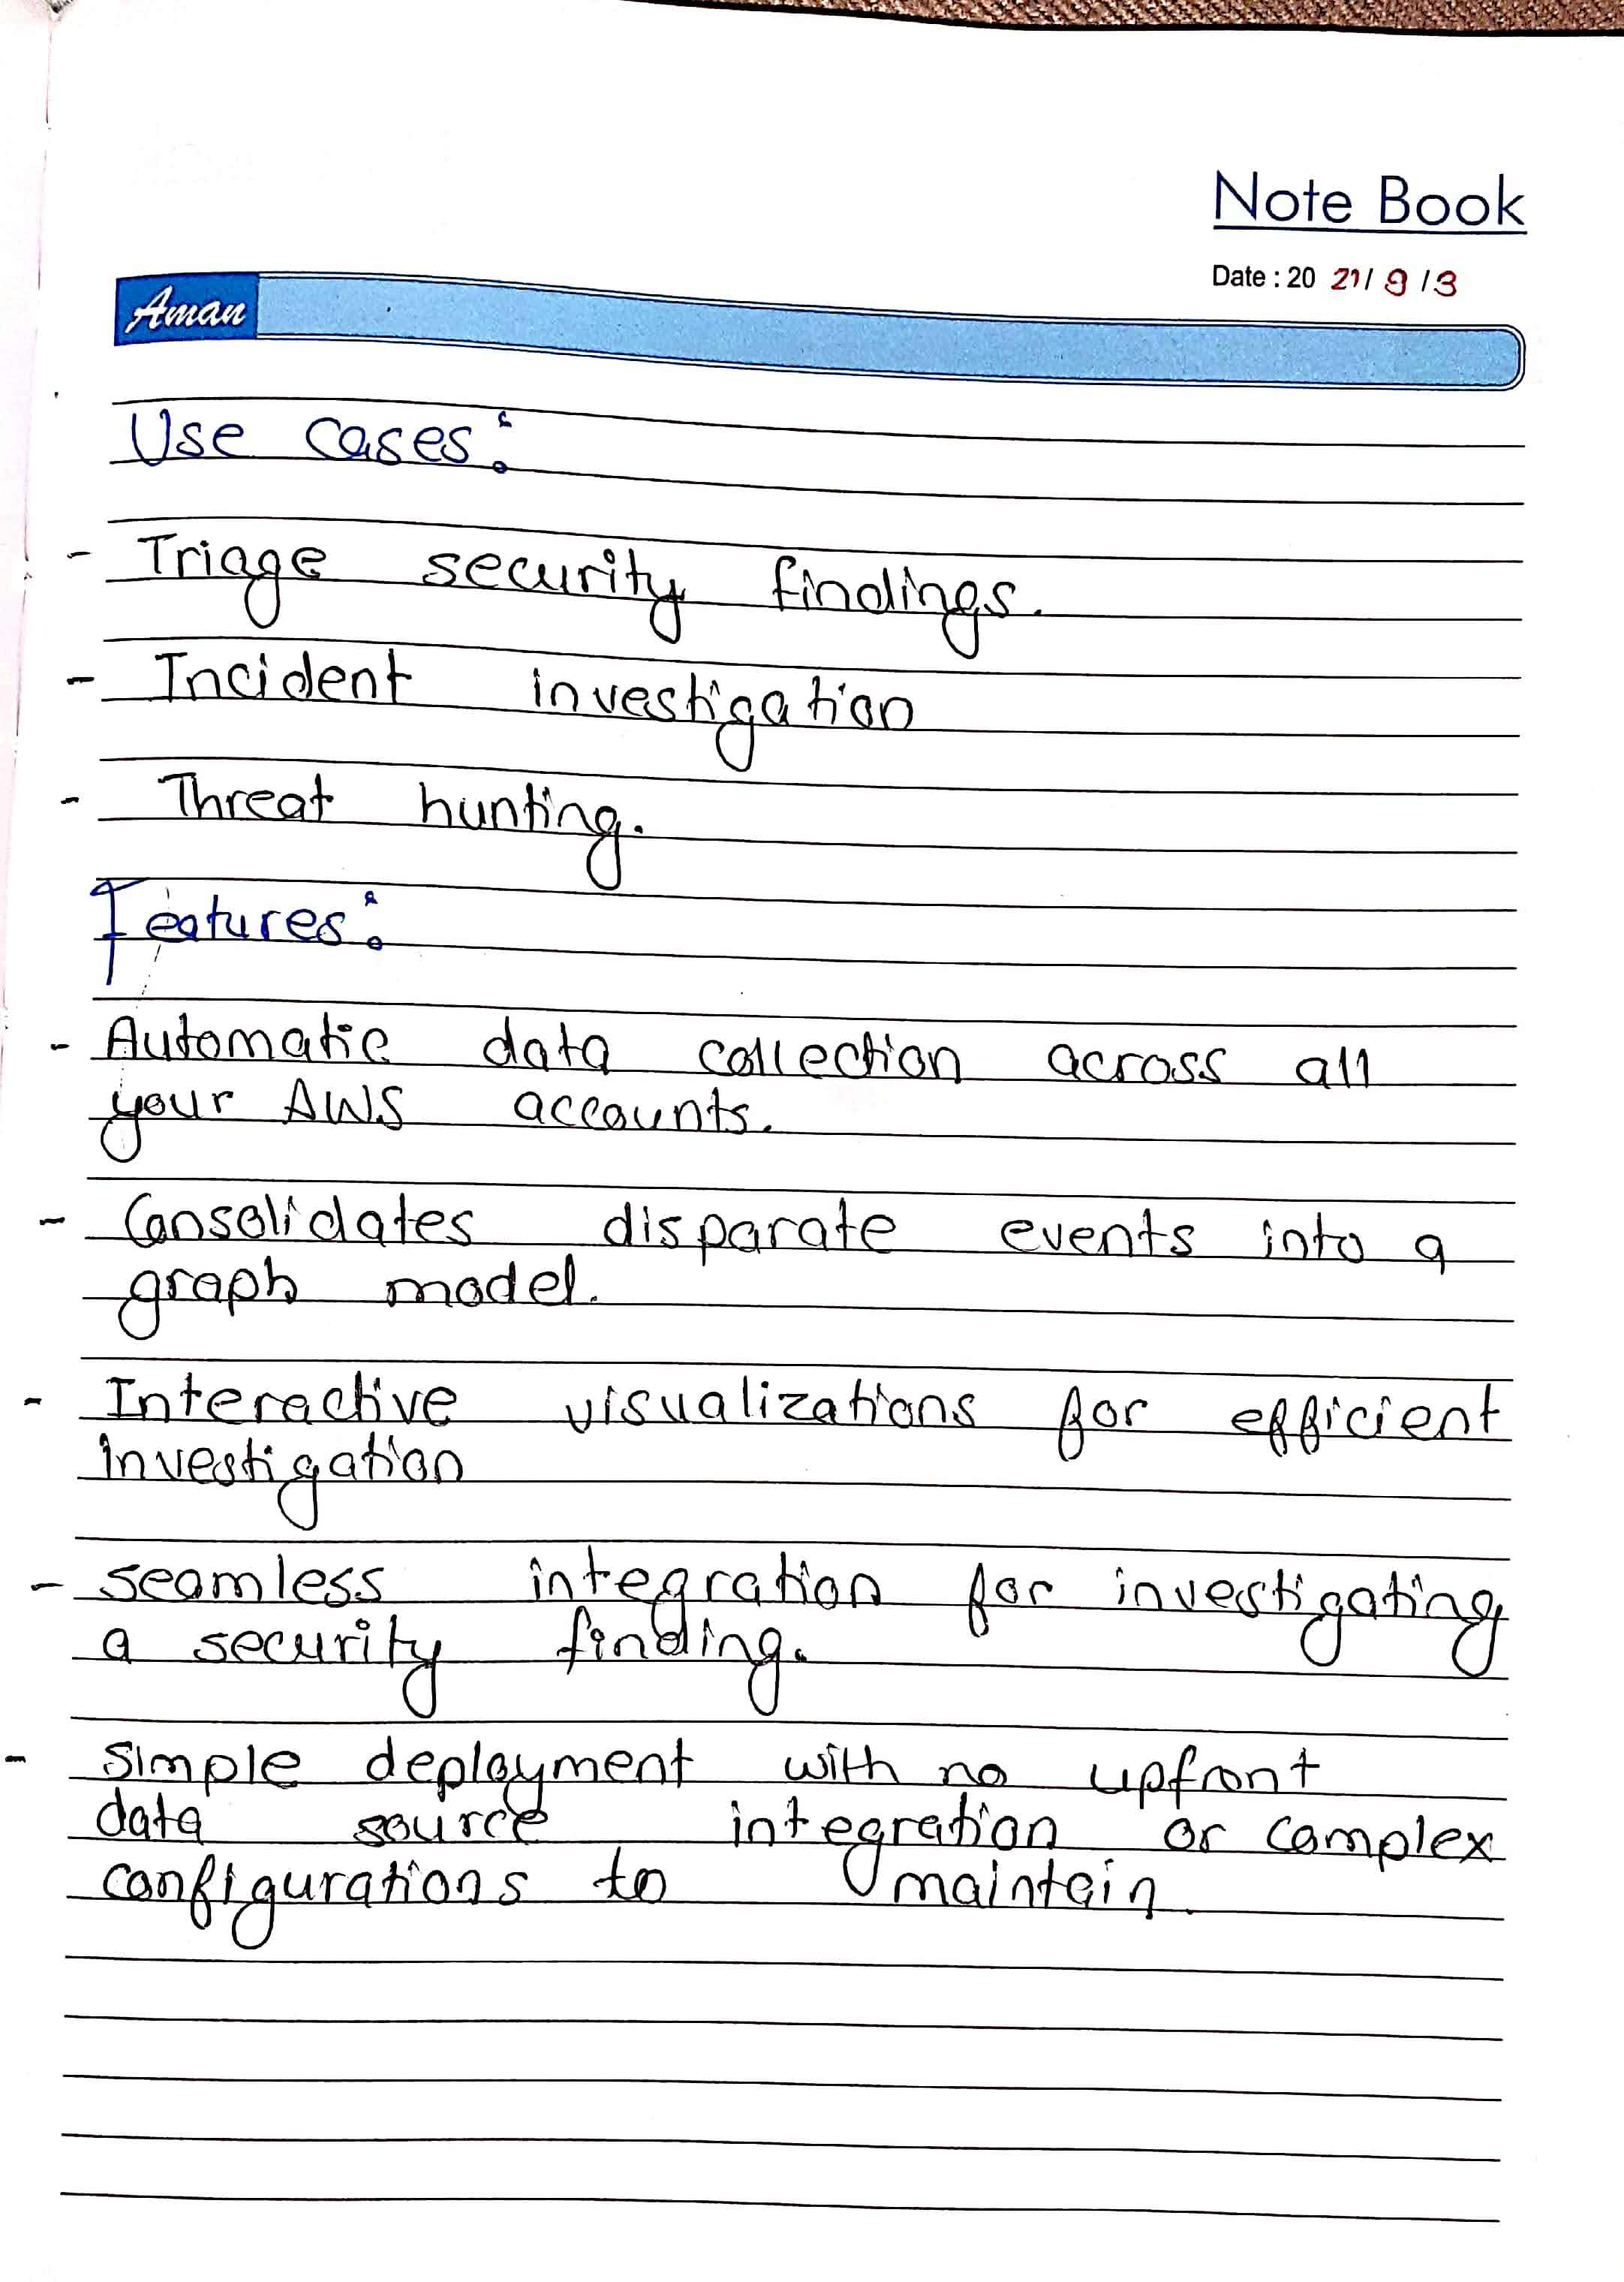 Note Book
Date : 20 21/ 9 /3
Aman
Use cases:
- Triage security findings.
- Incident investigation
- Threat hunting.
Features:
- Automatic data collection across all
your AWS accounts.
- Consolidates disparate events into a
graph model.
- Interactive visualizations for efficient
investigation
- seamless integration for investigating
a security finding.
- simple deployment with no upfront
data source integration or complex
configurations to maintain.